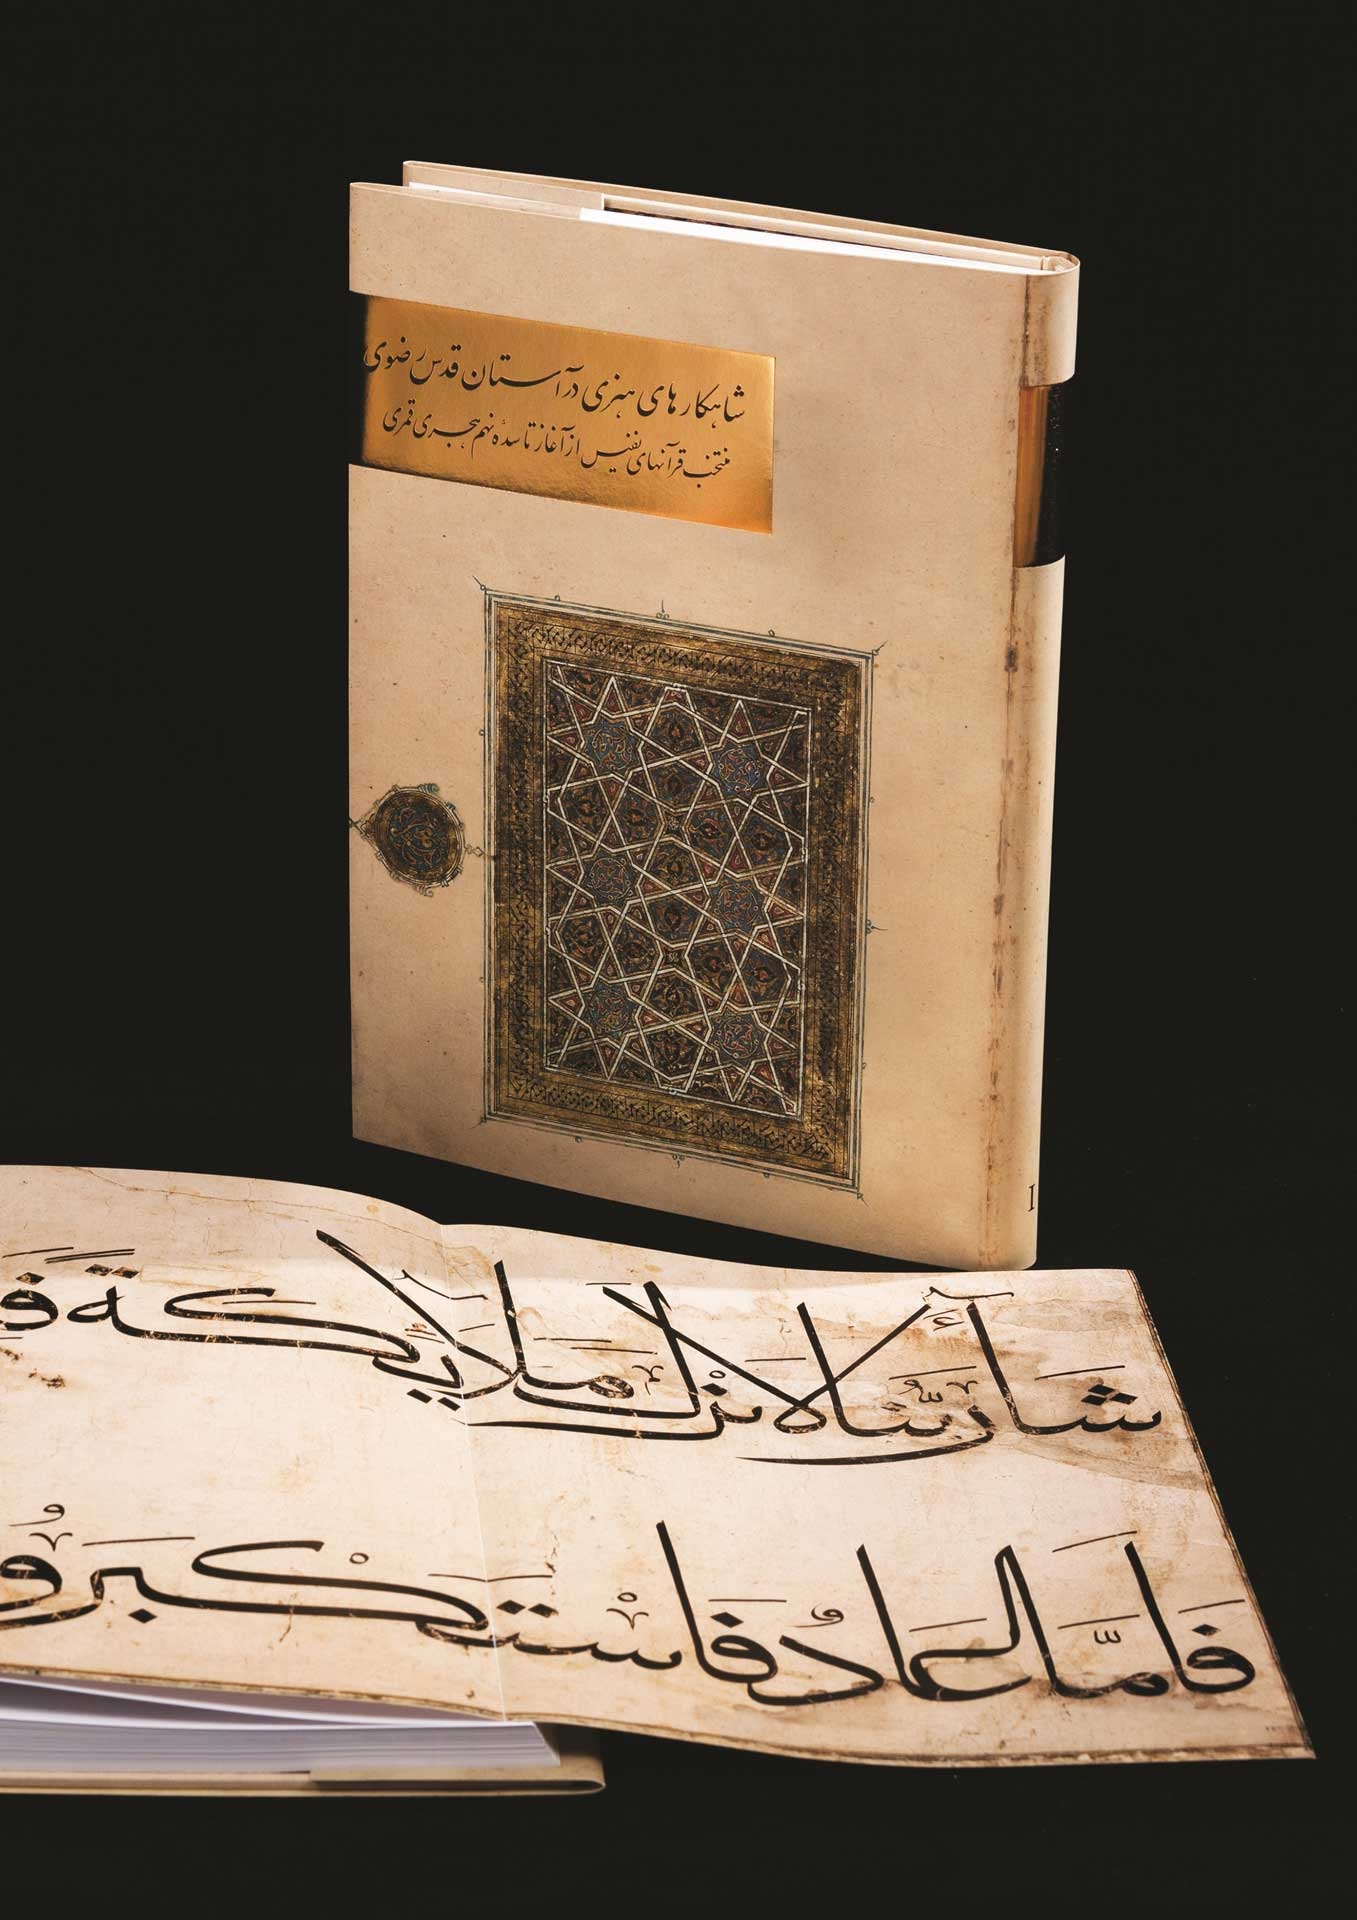 شاهکارهای هنری در آستان قدس رضوی
منتخب قرآنهای نفیس از آغاز تا سدهٔ نهم هجری قمری
1
شَآءَ رَبُّنَا لَأَنْزَلَ مَلَايِكَةً فَ
فَأَمَّا عَادٌ فَاسْتَكْبَرُو